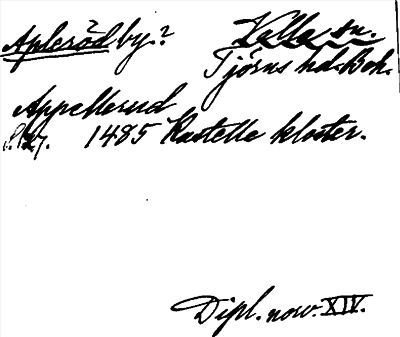 Apleröd by.? Valla sn.
Tjörns hd. Boh.
Appellerud
s. 127. 1485 Kastelle kloster.
Dipl. norv. XIV.